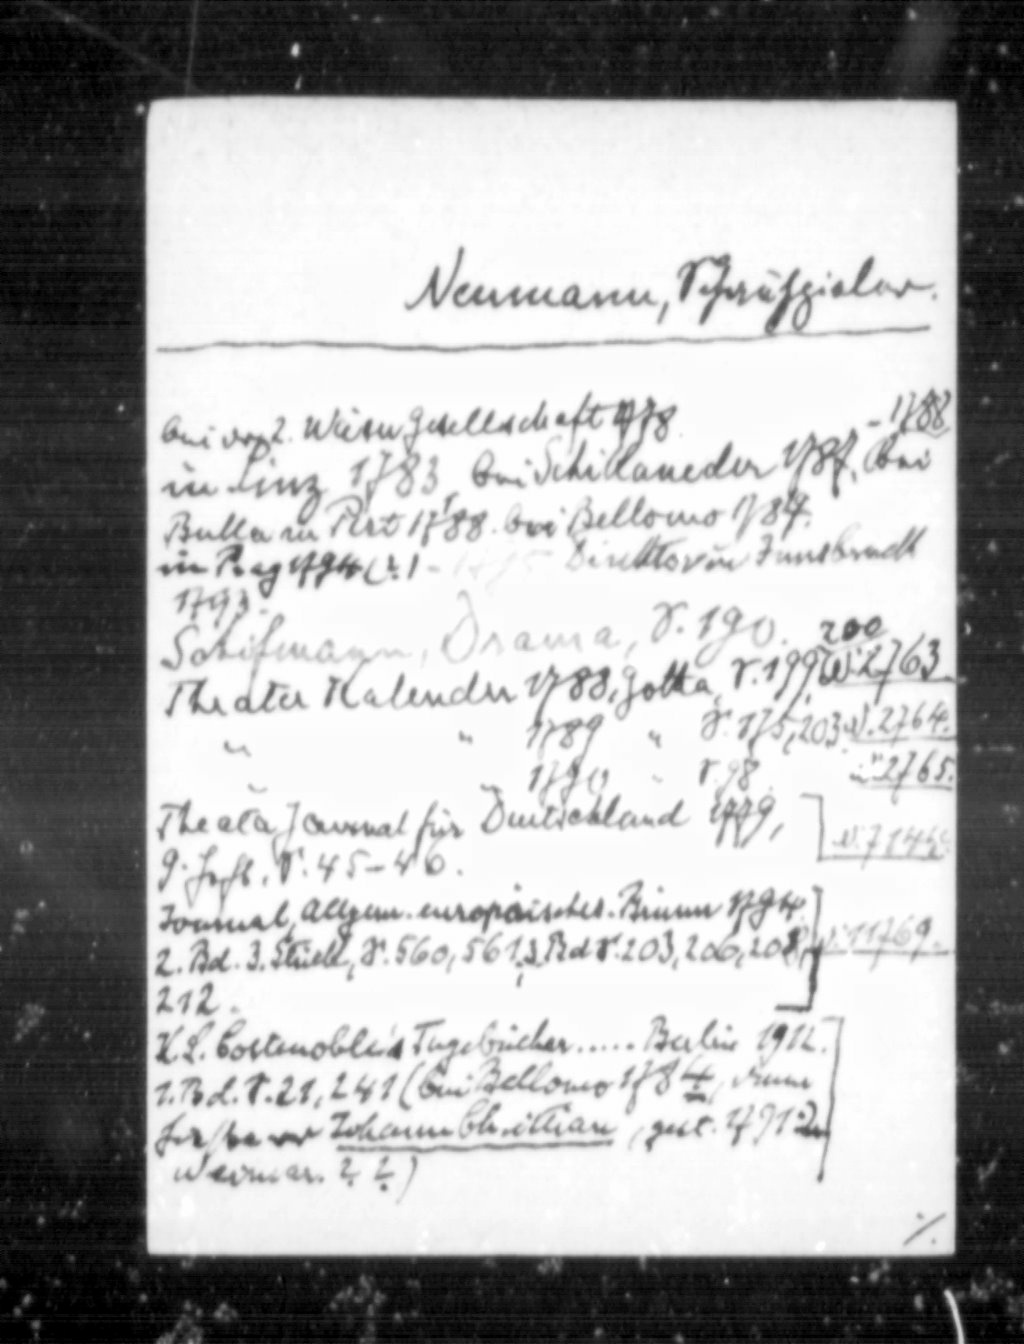 Neumann, Schauspieler.
bei der 2. Wäsen Gesellschaft 1778 - 1788
in Linz 1783 bei Schikaneder 1787, bei
Bulla in Pest 1788. bei Bellomo 1784.
in Prag 1794 (?) - 1795 Direktor in Innsbruck
1793.
Schifmann, Drama, S. 190. 200
Theater Kalender 1788, Gotha, S. 199, N. 2763
" " 1789 " S. 175, 203. N. 2764.
" " 1790 " S. 98. N. 2765.
Theater Journal für Deutschland 1779,
9. Heft, S. 45-46.
Journal, Allgem. europäisches. Brünn 1794.
2. Bd. 3. Stück, S. 560, 561, 3. Bd S. 203, 206, 208, N. 11769.
212.
K. L. Costenoble's Tagebücher..... Berlin 1912.
1. Bd. S. 21, 241 (bei Bellomo 1784,
Johann Christian, gest. 1791 in
Weimar. ? ?)